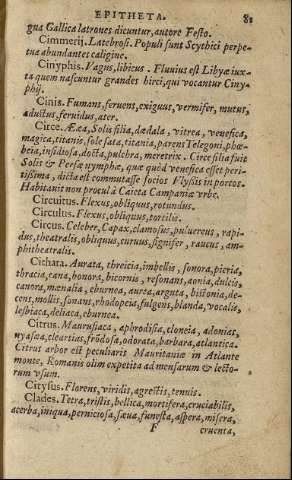 EPITHETA. 81
gua Gallica latrones dicuntur, autore Festo.
Cimmerij. Latebrosi. Populi sunt Scythici perpe-
tua abundantes caligine.
Cinyphis. Vagus, libicus. Fluuius est Libyæ iux-
ta quem nascuntur grandes hirci, qui vocantur Ciny-
phij.
Cinis. Fumans, feruens, exiguus, vermifer, mutus,
adustus, feruidus, ater.
Circe. Ææa, Solis filia, dædala, vitrea, venefica,
magica, titanis, sole sata, titania, parens Telegoni, phœ-
beia, insidiosa, docta, pulchra, meretrix. Circe filia fuit
Solis & Persæ nymphæ, quæ quòd venefica esset peri-
tißima, dicta est commutasse socios Vlyßis in porcos.
Habitauit non procul à Caieta Campaniæ vrbe.
Circuitus. Flexus, obliquus, rotundus.
Circulus. Flexus, obliquus, tortilis.
Circus. Celeber, Capax, clamosus, puluereus, rapi-
dus, theatralis, obliquus, curuus, signifer, raucus, am-
phitheatralis.
Cithara. Aurata, threicia, imbellis, sonora, pieria,
thracia, cana, honora, bicornis, resonans, aonia, dulcis,
canora, mænalia, eburnea, aurea, arguta, bistonia, de-
cens, mollis, sonans, rhodopeia, fulgens, blanda, vocalis,
lesbiaca, deliaca, eburnea.
Citrus. Maurusiaca, aphrodisia, cloneia, adonias,
nyasæa, cleartias, frōdosa, odorata, barbara, atlantica.
Citrus arbor est peculiaris Mauritaniæ in Atlante
monte, Romanis olim expetita ad mensarum & lecto-
rum vsum.
Citysus. Florens, viridis, agrestis, tenuis.
Clades. Tetra, tristis, bellica, mortifera, cruciabilis,
acerba, iniqua, perniciosa, sæua, funesta, aspera, misera,
F cruenta,